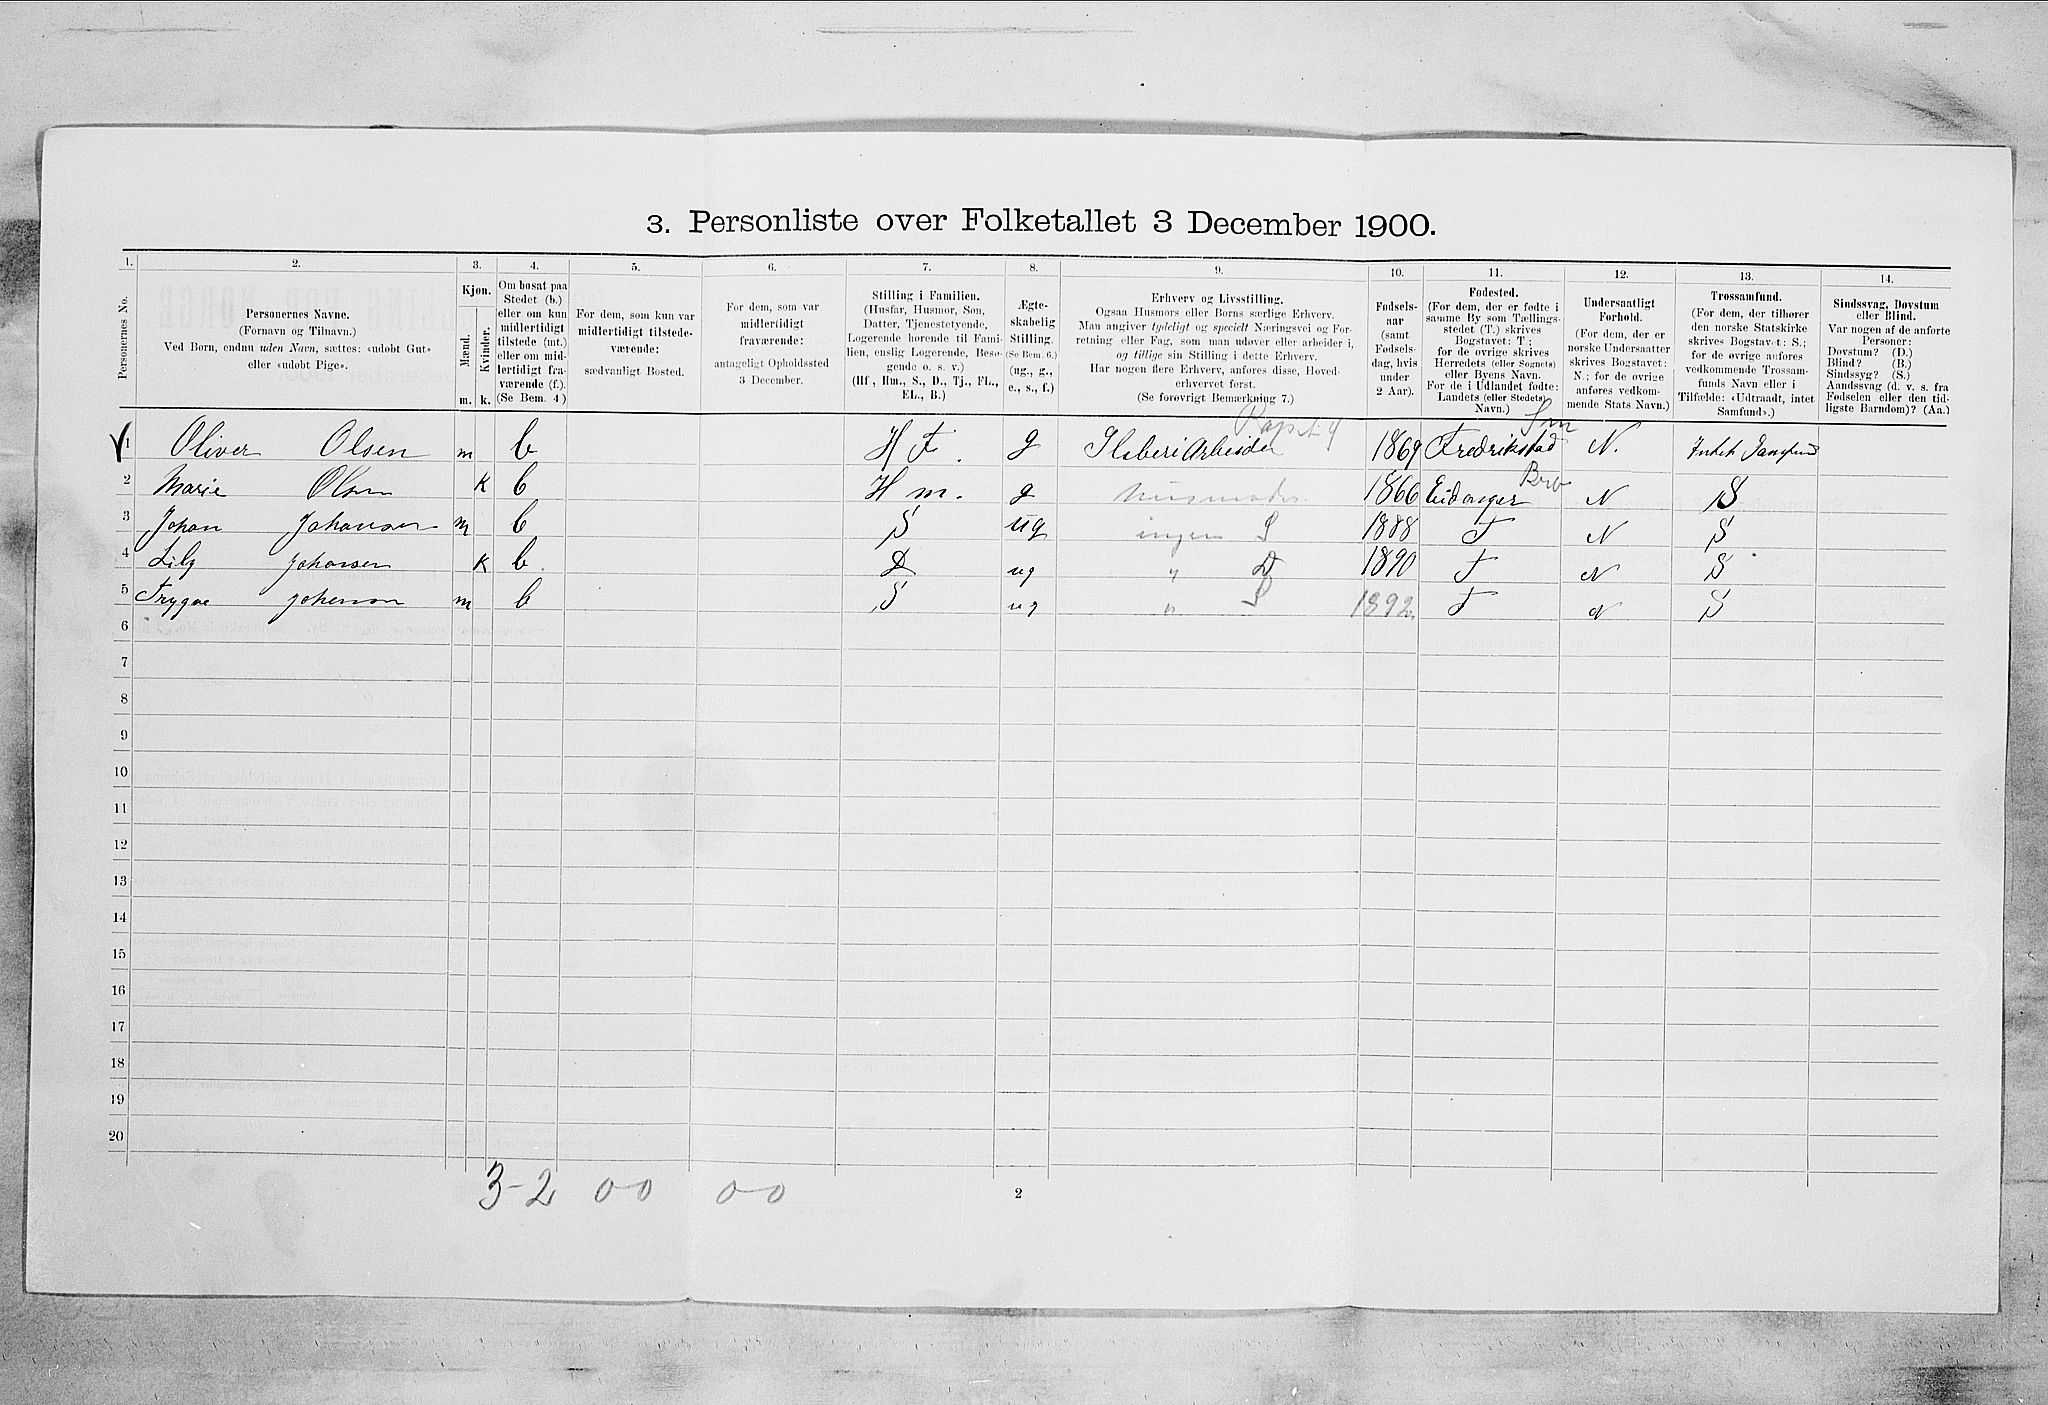 3. Personliste over Folketallet 3 December 1900.
1. 2. 3. 4. 5. 6. 7. 8. 9. 10. 11. 12. 13. 14.
Personernes No.
Personernes Navne.
(Fornavn og Tilnavn.)
Ved Børn, endnu uden Navn, sættes: «udøbt Gut»
eller «udøbt Pige».
Kjøn.
Mænd.
Kvinder.
m. k.
Om bosat paa
Stedet (b.)
eller om kun
midlertidigt
tilstede (mt.)
eller om mid-
lertidigt fra-
værende (f.).
(Se Bem. 4)
For dem, som kun var
midlertidigt tilstede-
værende:
sædvanligt Bosted.
For dem, som var
midlertidigt
fraværende:
antageligt Opholdssted
3 December.
Stilling i Familien.
(Husfar, Husmor, Søn,
Datter, Tjenestetyende,
Logerende hørende til Fami-
lien, enslig Logerende, Besø-
gende o. s. v.)
(Hf, Hm., S., D., Tj., FL.,
EL., B.)
Ægte-
skabelig
Stilling.
(Se Bem. 6.)
(ug., g.,
e., s., f.)
Erhverv og Livsstilling.
Ogsaa Husmors eller Børns særlige Erhverv.
Man angiver tydeligt og specielt Næringsvei og For-
retning eller Fag, som man udøver eller arbeider i,
og tillige sin Stilling i dette Erhverv.
Har nogen flere Erhverv, anføres disse, Hoved-
erhvervet først.
(Se forøvrigt Bemærkning 7.)
Fødsels-
aar
(samt
Fødsels-
dag, hvis
under
2 Aar).
Fødested.
(For dem, der er fødte i
samme By som Tællings-
stedet (T.) skrives
Bogstavet: T;
for de øvrige skrives
Herredets (eller Sognets)
eller Byens Navn.
For de i Udlandet fødte:
Landets (eller Stedets)
Navn.)
Undersaatligt
Forhold.
(For dem, der er
norske Undersaatter
skrives Bogstavet:
N.; for de øvrige
anføres vedkom-
mende Stats Navn.)
Trossamfund.
(For dem, der tilhører
den norske Statskirke
skrives Bogstavet: S.;
for de øvrige anføres
vedkommende Trossam-
funds Navn eller i
Tilfælde: «Udtraadt, intet
Samfund».)
Sindssvag, Døvstum
eller Blind.
Var nogen af de anførte
Personer:
Døvstum? (D.)
Blind? (B.)
Sindssyg? (S.)
Aandssvag (d. v. s. fra
Fødselen eller den tid-
ligste Barndom)? (Aa.)
1 Oliver Olsen m b H F. g Arbeider 1869 Fredrikstad N.
2 Marie Olsen k b H m. g husmoder 1866 Eidanger N S
3 Johan Johansen m b S ug ingen S 1888 T N S
4 Lily Johansen k b. D ug " D 1890 T N S
5 Trygve Johansen m b S ug " S 1892 T N S
6
7
8
9
10
11
12
13
14
15
16
17
18
19
20
3-2 0 0 0 0
2